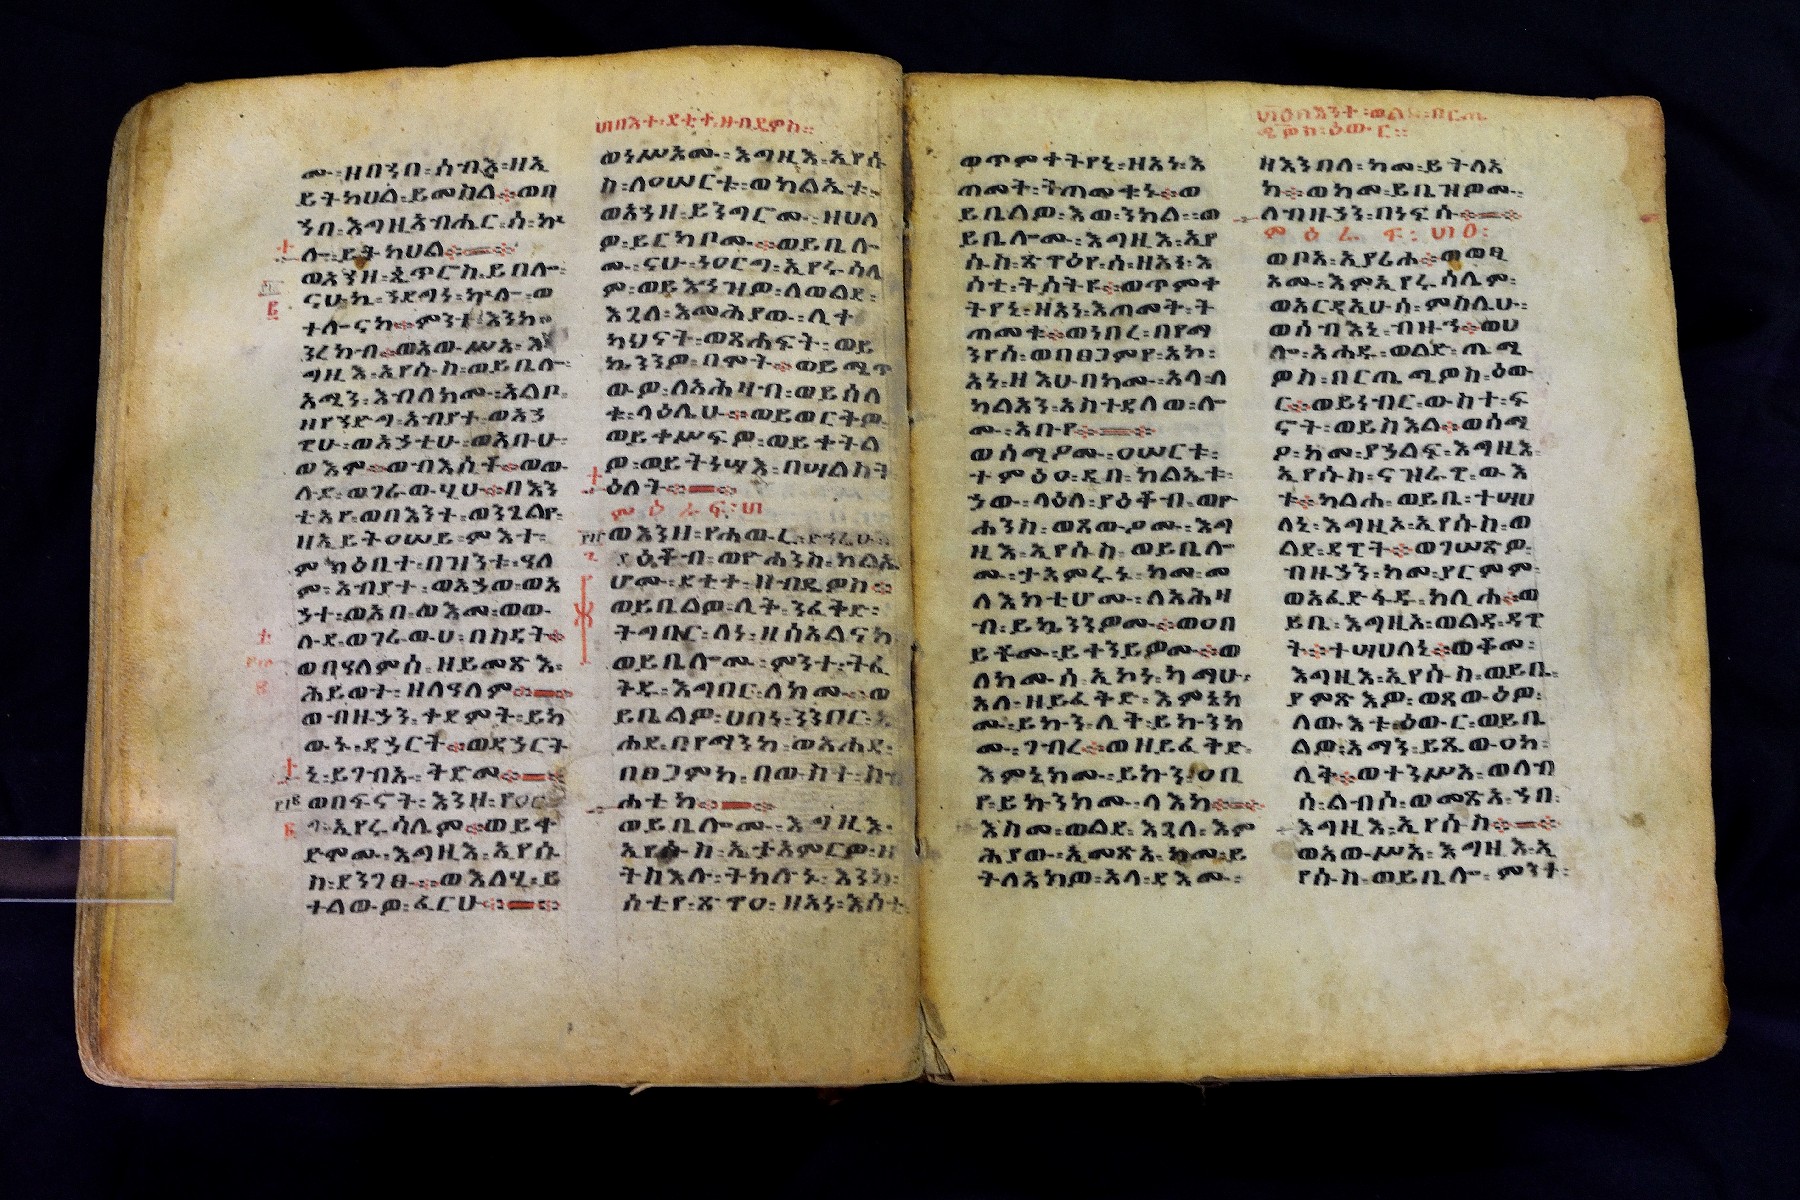 ሙ፡ዘበኀበ፡ሰብእ፡ዘኢ
ይትከሀል፡ይመስል፡ወበ
ኀበ፡እግዚአብሔር፡ሰ፡ኵ
ሉ፡ይትከሀል
ወእንዘ፡ጴጥሮስ፡ይበሎ፡
ናሁ፡ኬ፡ንደግነ፡ኵሎ፡ወ
ተሎናከ፡ምንተ፡እንከ፡
ንረክብ፡ወአውሥአ፡እ
ግዚእ፡ኢየሱስ፡ወይቤሎ፡
አማን፡እብለክሙ፡አልቦ፡
ዘየኀድግ፡አብያተ፡ወአኀ
ዊሁ፡ወአኃቲሁ፡ወአቡሁ፡
ወእሞ፡ወብእሲቶ፡ወው
ሉደ፡ወገራውሂሁ፡በእን
ቲአየ፡ወበእንተ፡ወንጌልየ፡
ዘኢይትዐሠይ፡ምእተ፡
ምክዕቢተ፡በዝንቱ፡ዓለ
ም፡አብያተ፡ወአኃው፡ወአ
ኃተ፡ወአበ፡ወእመ፡ወው
ሉደ፡ወገራውሀ፡በስደት፡
ወበዓለምሰ፡ዘይመጽእ፡
ሕይወተ፡ዘለዓለም
ወብዙኃን፡ቀደምት፡ይከ
ውኑ፡ዳኃርተ፡ወደኃርት
ኒ፡ይገብኡ፡ቅድመ
ወበፍኖት፡እንዘ፡የዐርጉ፡
ኢየሩሳሌም፡ወይቀ
ድሞሙ፡እግዚእ፡ኢየሱ
ስ፡ደንገፁ፡ወእለሂ፡ይ
ተልውዎ፡ፈርሁ
በእተ፡ደቂቀ፡ዘብዴዎስ።
ወነሥአሙ፡እግዚእ፡ኢየሱ
ስ፡ለዐሠርቱ፡ወክልኤቱ፡
ወአኀዘ፡ይንግሮሙ፡ዘሀለ
ዎ፡ይርከቦሙ፡ወይቤሎ
ሙ፡ናሁ፡ነዐርግ፡ኢየሩሳሌ
ም፡ወይእኅዝዎ፡ለወልደ፡
እጓለ፡እመሕያው፡ሊቀ
ካህናት፡ወጸሐፍት፡ወይ
ኬንንዎ፡በሞት፡ወይሜጥ
ውዎ፡ለአሕዛብ፡ወይሳለ
ቁ፡ላዕሌሁ፡ወይወርቅዎ
ወይቀሥፍዎ፡ወይቀትል
ዎ፡ወይትነሣእ፡በሣልስት
ዕለት
ምዕራፍ፡፴
ወእንዘ፡የሐውር፡ይንፈሁ፡
ያዕቆብ፡ወዮሐንስ፡ክልኤ
ሆሙ፡ደቂቀ፡ዘብዴዎስ
ወይቤልዎ፡ሊቅ፡ንፈቅድ፡
ትግበር፡ለነ፡ዘሰአልናከ
ወይቤሎሙ፡ምንተ፡ትፈ
ቅዱ፡እግበር፡ለክሙ፡ወ
ይቤልዎ፡ሀበነ፡ንንበር፡አ
ሐዱ፡በየማንከ፡ወአሐዱ፡
በፀጋምከ፡በውስተ፡ስብ
ሐቲከ
ወይቤሎሙ፡እግዚእ፡
ኢየሱስ፡ኢታአምርዎ፡ዘ
ትስእሉ፡ትክሉኑ፡እንከ፡
ሰቲየ፡ጽዋዐ፡ዘአነ፡እሰቲ
ወጥምቀትየኒ፡ዘአነ፡እ
ጠመቅ፡ትጠመቁኑ፡ወ
ይቤልዎ፡እወ፡ንክል፡ወ
ይቤሎሙ፡እግዚእ፡ኢየ
ሱስ፡ጽዋዕየሰ፡ዘአነ፡እ
ሰቲ፡ትሰትዩ፡ወጥምቀ
ትየኒ፡ዘአነ፡እጠመቅ፡ት
ጠመቁ፡ወነቢረ፡በየማ
ንየሰ፡ወበፀጋምየ፡አኮ፡
አነ፡ዘእሁበክሙ፡አላ፡ለ
ካልአን፡አስተዳለወ፡ሎ
ሙ፡አቡየ
ወሰሚዖሙ፡ዐሠርቱ፡
ተምዕዑ፡ዲበ፡ክልኤቱ፡
ኃው፡ላዕለ፡ያዕቆብ፡ወዮ
ሐንስ፡ወጸውዖሙ፡እግ
ዚእ፡ኢየሱስ፡ወይቤሎ
ሙ፡ታአምሩኑ፡ከመ፡መ
ላእክቲሆሙ፡ለአሕዛ
ብ፡ይኬንንዎሙ፡ወዐበ
ይቶሙ፡ይቀንይዎሙ፡ወ
ለክሙሰ፡ኢኮነ፡ከማሁ፡
አላ፡ዘይፈቅድ፡እምኔክ
ሙ፡ይኩን፡ሊቀ፡ይኩንክ
ሙ፡ገብረ፡ወዘይፈቅድ፡
እምኔክሙ፡ይኩን፡ዐቢ
የ፡ይኩንክሙ፡ላእከ
እስመ፡ወልደ፡እጓለ፡እም
ሕያው፡ኢመጽአ፡ከመ፡ይ
ትለአክዎ፡አላ፡ደእሙ፡
፴፩በእንተ፡ወልደ፡በርጤ
ሜዎስ፡ዕውር።
ዘእንበለ፡ከመ፡ይትለአ
ክ፡ወከመ፡ይቤዝዎሙ፡
ለብዙኃን፡በነፍሱ
ምዕራፍ፡፴፩፡
ወቦአ፡ኢያሪሐ፡ወወፂ
አሙ፡እምኢየሩሳሌም፡
ወአርዳኢሁ፡ምስሌሁ፡
ወሰብእኒ፡ብዙኅ፡ወሀ
ሎ፡አሐዱ፡ወልድ፡ጤሜ
ዎስ፡በርጤሜዎስ፡ዕው
ር፡ወይነብር፡ውስተ፡ፍ
ኖት፡ወይስእል፡ወሰሚ
ዖ፡ከመ፡ያኃልፍ፡እግዚእ፡
ኢየሱስ፡ናዝራዊ፡ውእ
ቱ፡ከልሐ፡ወይቤ፡ተሣሀ
ለኒ፡እግዚእ፡ኢየሱስ፡ወ
ልደ፡ዳዊት፡ወገሠጽዎ፡
ብዙኃን፡ከመ፡ያርምም፡
ወአፈድፋዱ፡ከሊሐ፡ወ
ይቤ፡እግዚእ፡ወልዳ፡ዳዊ
ት፡ተሣሀለኒ፡ወቆመ፡
እግዚእ፡ኢየሱስ፡ወይቤ፡
ያምጽእዎ፡ወጸውዕዎ፡
ለውእቱ፡ዕውር፡ወይቤ
ልዎ፡እማን፡ይጼውዐከ፡
ሊቅ፡ወተንሥአ፡ወለብ
ሰ፡ልብሶ፡ወመጽአ፡ኀበ፡
እግዚእ፡ኢየሱስ
ወአውሥአ፡እግዚእ፡ኢ
የሱስ፡ወይቤሎ፡ምንተ፡